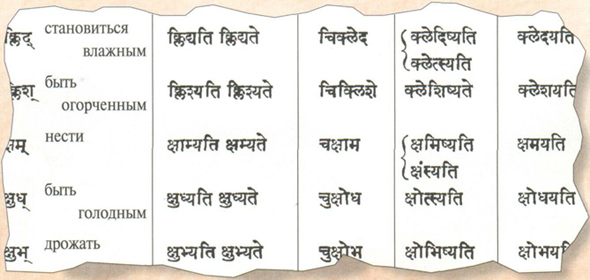 क्लिद् становиться क्लिद्यति क्लिद्यते चिक्लेद क्लेदिष्यति क्लेदयति
влажным क्लेत्स्यति
क्लिश् быть क्लिश्यति क्लिश्यते चिक्लिशे क्लेशिष्यते क्लेशयति
огорченным
क्षम् нести क्षाम्यति क्षम्यते चक्षाम क्षमिष्यति क्षमयति
क्षंस्यति
क्षुध् быть क्षुध्यति क्षुध्यते चुक्षोध क्षोत्स्यति क्षोधयति
голодным
क्षुभ् дрожать क्षुभ्यति क्षुभ्यते चुक्षोभ क्षोभिष्यति क्षोभयति